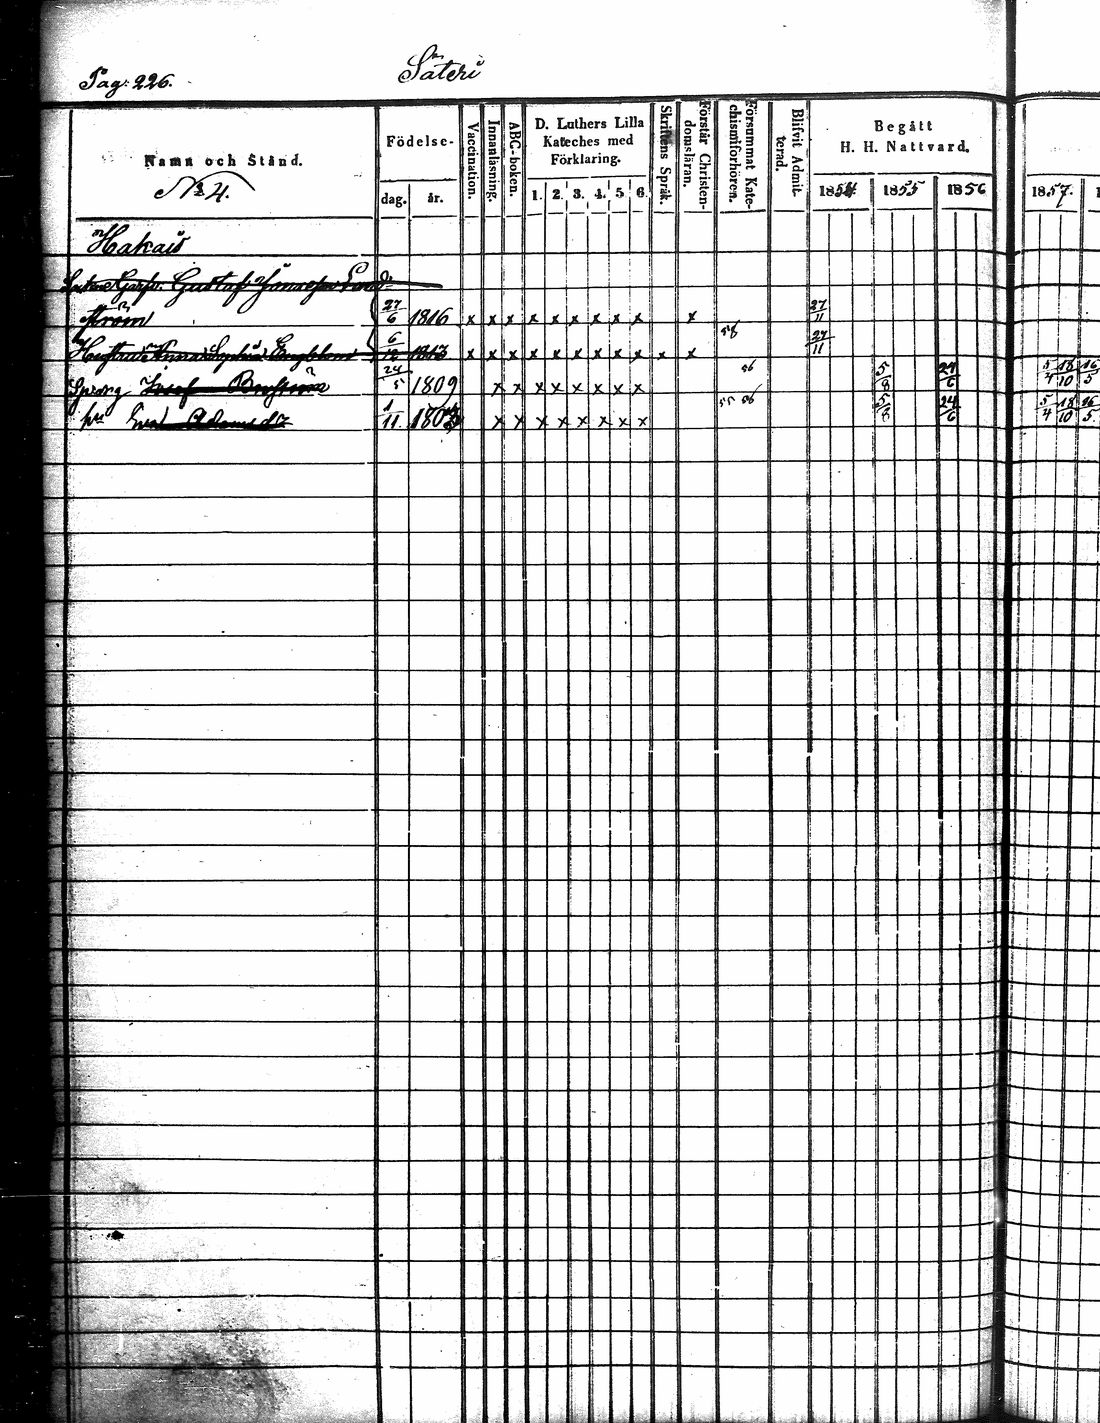 Pag: 226.
Säteri
Namn och Stånd.
№ 4.
Födelse-
dag.
år.
Vaccination.
Innanläsning.
ABC-boken.
D. Luthers Lilla
Kateches med
Förklaring.
1. 2. 3. 4. 5 6.
Skriftens Språk.
Förstår Christen-
domsläran.
Försummat Kate-
chismiförhören.
Blifvit Admit-
terad.
Begått
H. H. Nattvard.
1854 1855 1856
1857.
Hakais
Gustaf
ström 27/6 1816 x x x x x x x x x x 27/11
Hustrun Anna Sophia Engblom 6/12 1813 x x x x x x x x x x x 58 27/11
Josef 24/5 1809 x x x x x x x x 56 5/8 24/6 5/4 18/10 16/5
Eva Adamsd:r 1/11. 1803 x x x x x x x x 55 56 5/8 24/6 5/4 18/10 26/5.